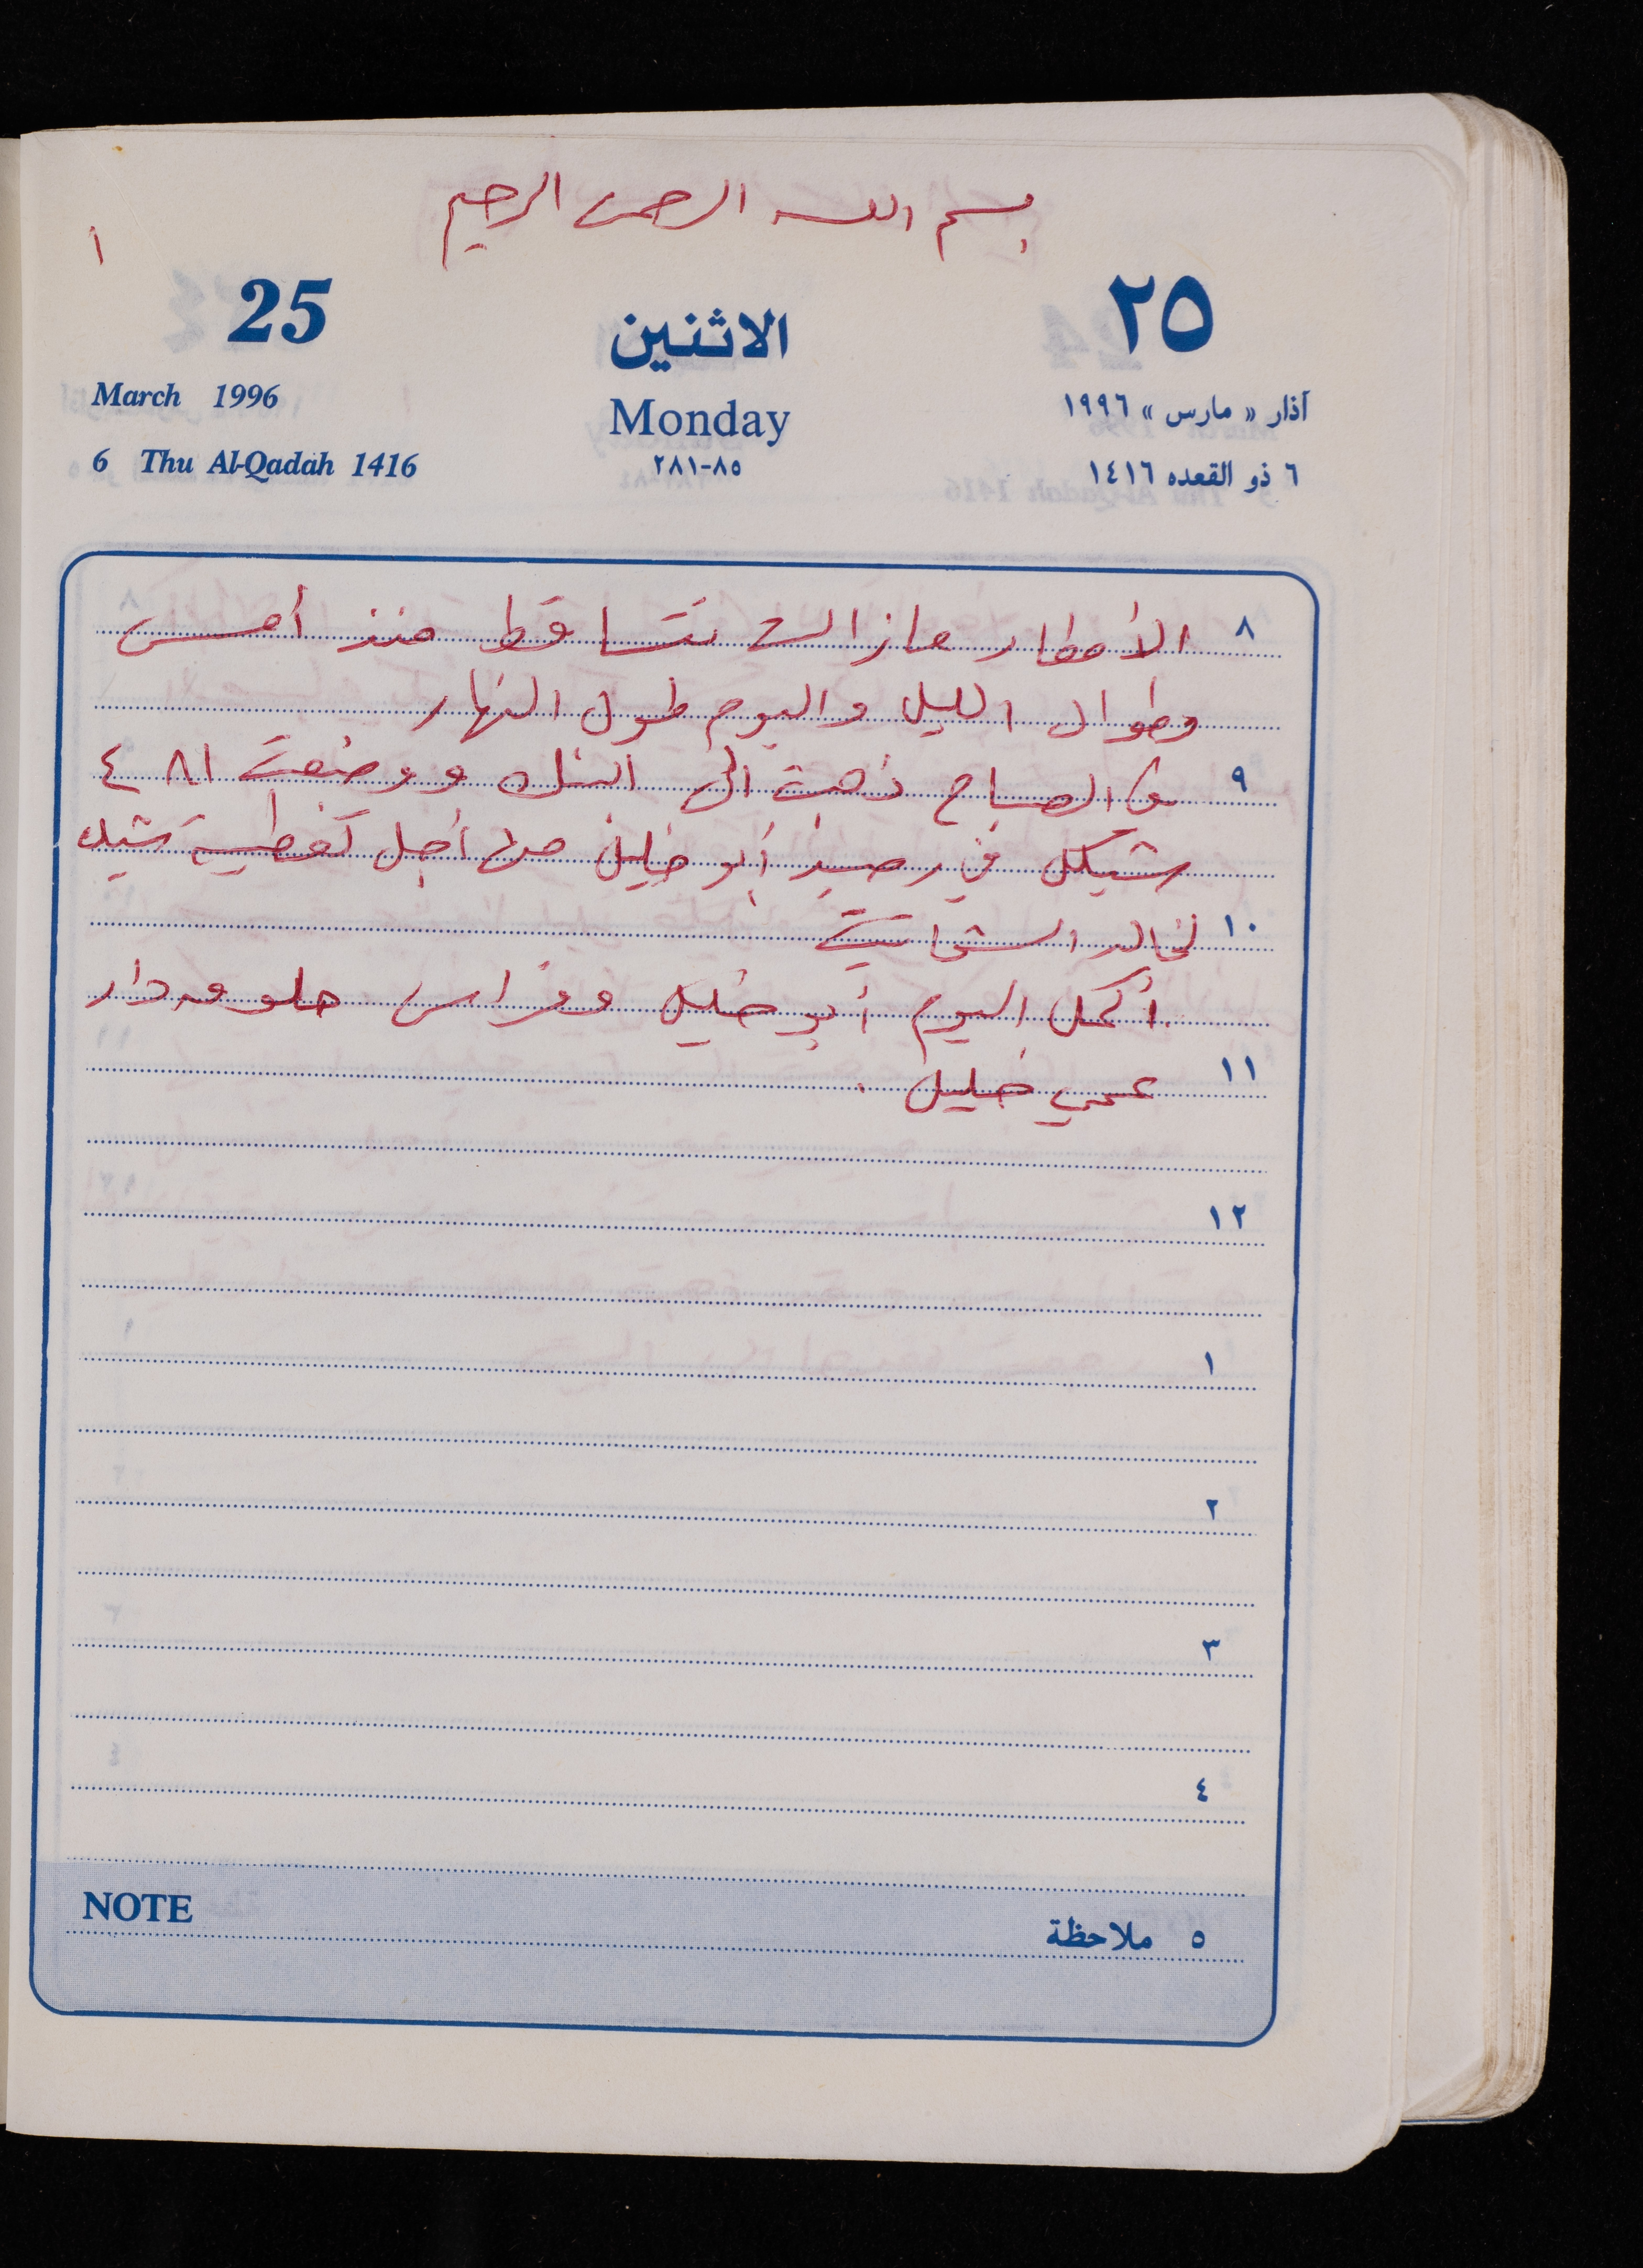 بسم الله الرحمن الرحيم
١
25 الاثنين ٢٥
March 1996 Monday آذار « مارس » ١٩٩٦
6 Thu Al-Qadah 1416 ٢٨١-٨٥ ٦ ذو القعده ١٤١٦
٨ الأمطار مازالت تتساقط منذ أمس
وطوال الليل واليوم طول النهار
٩ في الصباح ذهبت الى البنك ووضعت ٤٨١
شيكل في رصيد أبو خليل من أجل تغطية شيك
١٠ لخالد
أكمل اليوم أبو خليل وفراس دار
١١ عمي خليل .
١٢
١
٢
٣
٤
NOTE ٥ ملاحظة